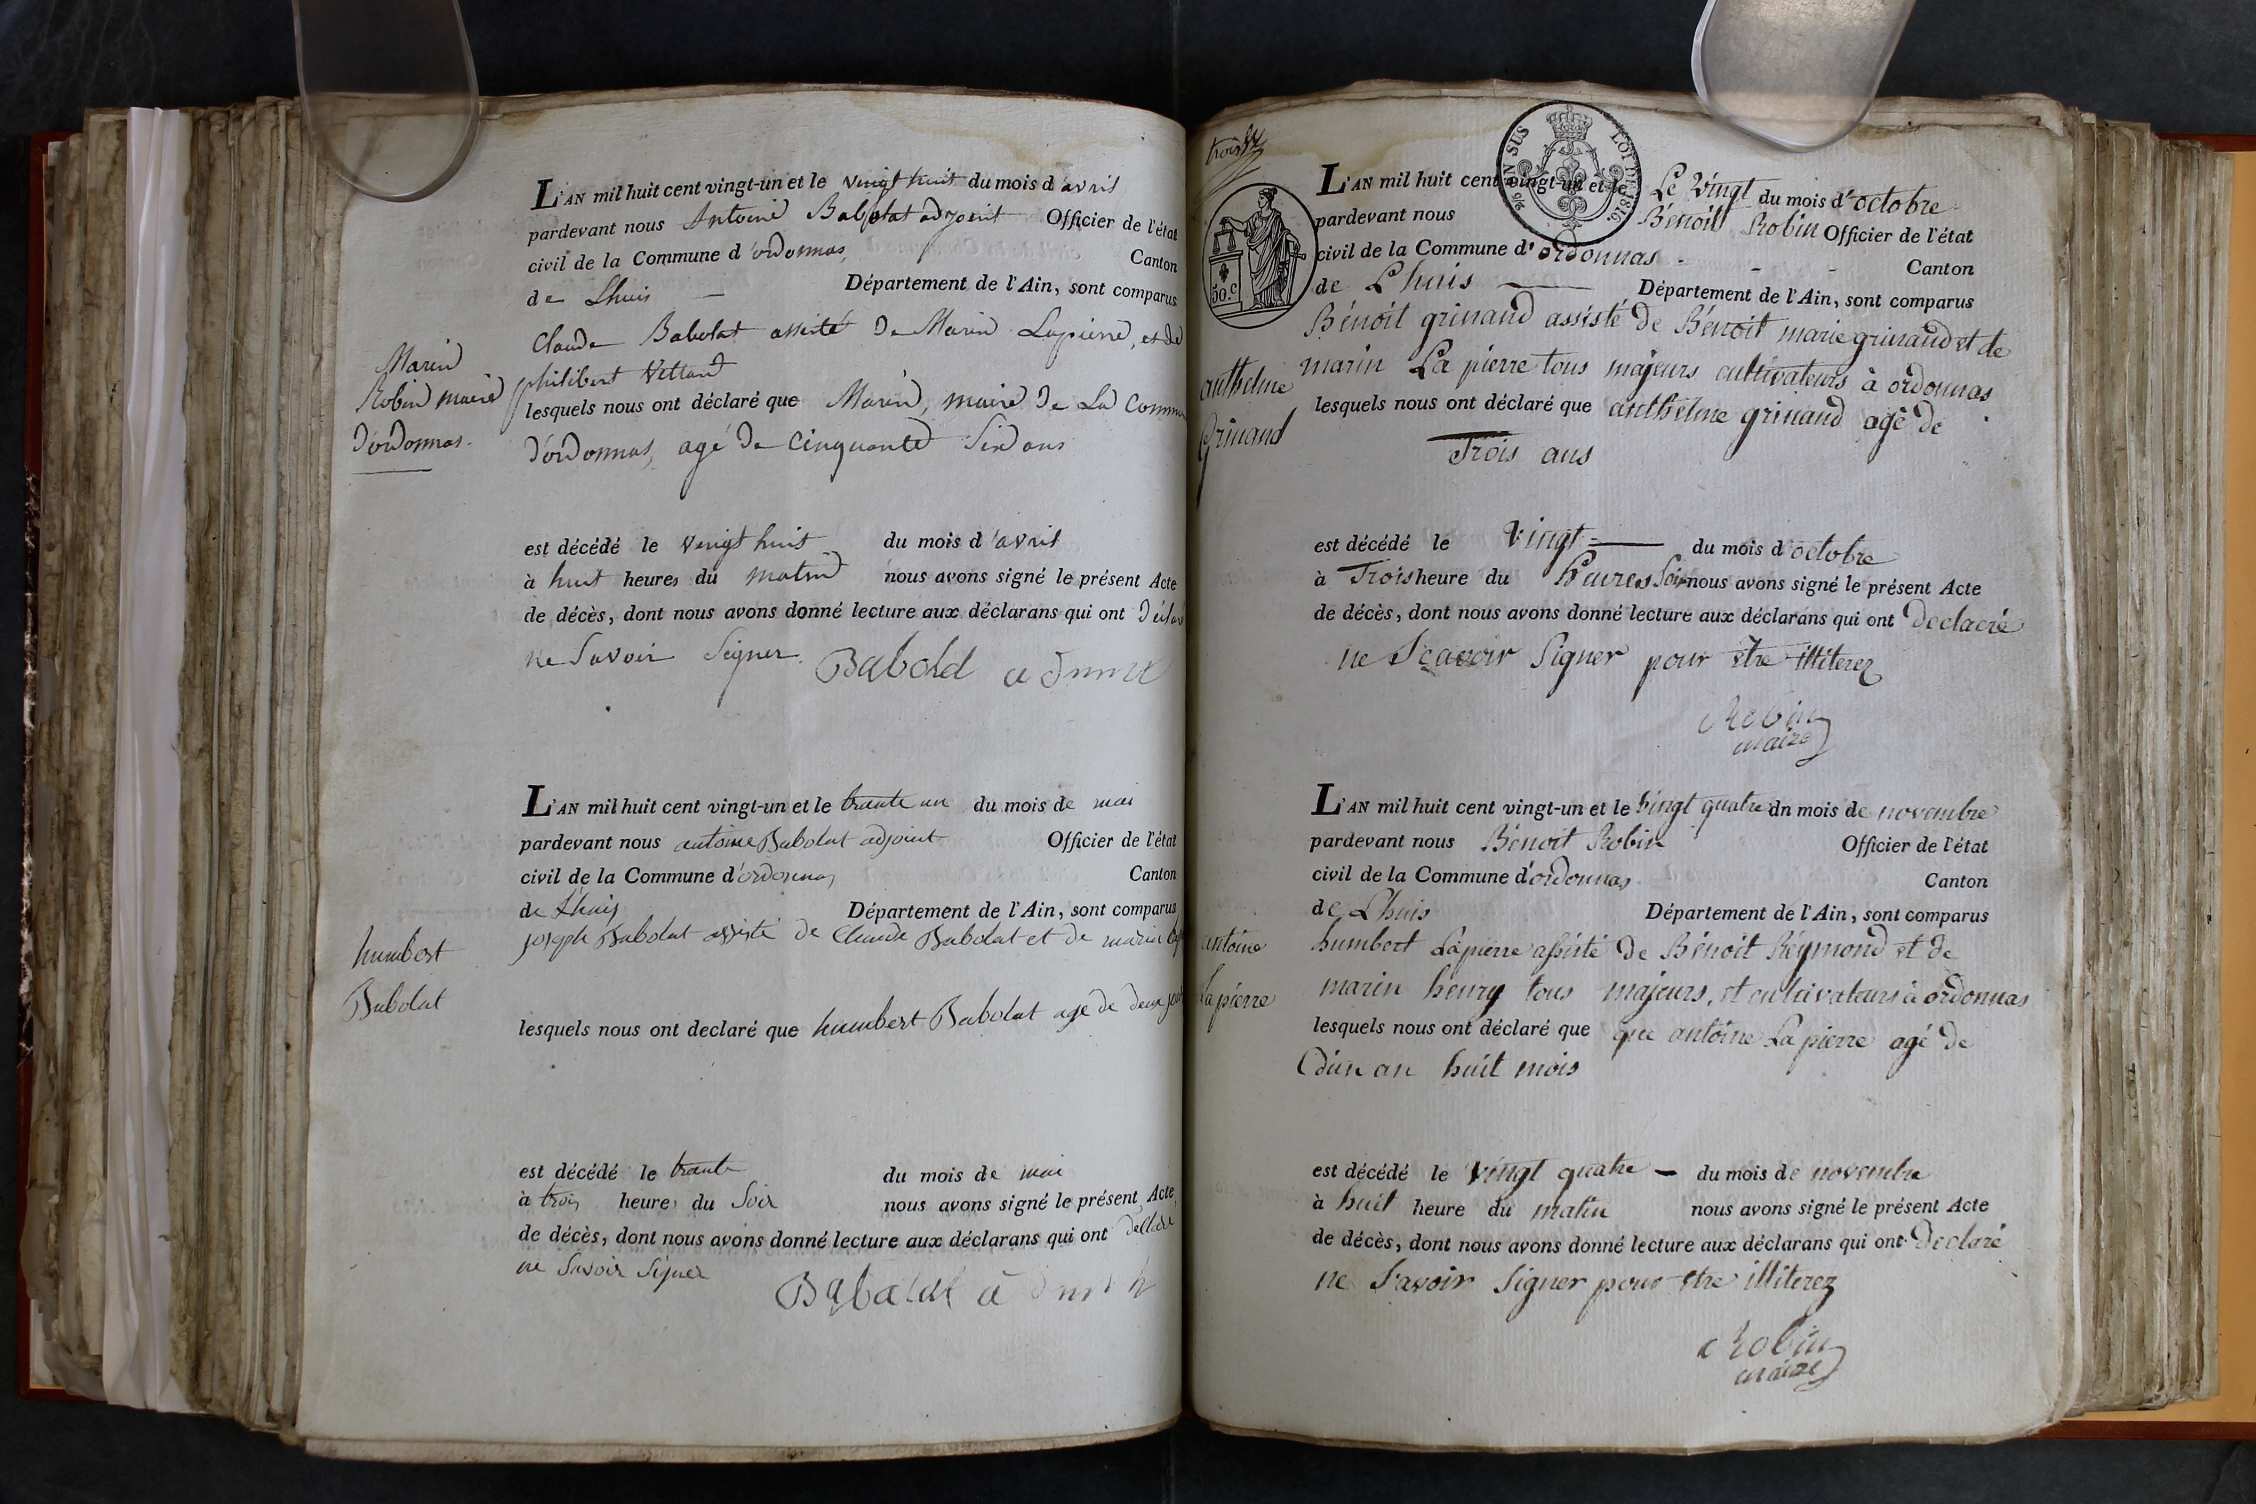 Marin
Robin maire
d'ordonnas.
L'AN mil huit cent vingt-un et le vingt huit du mois d'avril
pardevant nous Antoine Babolat adjoint Officier de l'état
civil de la Commune d'ordonnas, Canton
de Lhuis — Département de l'Ain, sont comparus
Claude Babolat assisté de Marin Lapierre, et de
philibert
lesquels nous ont déclaré que Marin, maire de La
d'ordonnas, agé de cinquante Six ans
est décédé le vingt huit du mois d'avril
à huit heures du matin nous avons signé le présent Acte
de décès, dont nous avons donné lecture aux déclarans qui ont
ne Savoir Signer.
humbert
Babolat
L'AN mil huit cent vingt-un et le trante un du mois de mai
pardevant nous antoine Babolat adjoint Officier de l'état
civil de la Commune d'ordonnas Canton
de Lhuis Département de l'Ain, sont comparus
joseph Babolat assisté de Claude Babolat et de marin
lesquels nous ont declaré que humbert Babolat agé de deux
est décédé le trante du mois de mai
à trois heures du Soir nous avons signé le présent Acte
de décès, dont nous avons donné lecture aux déclarans qui ont
ne Savoir Signer
trois
EN SUS LOI DE 1816.
50.c
anthelme
Grinand
L'AN mil huit cent vingt-un et le Le Vingt du mois d'octobre
pardevant nous Bénoit Robin Officier de l'état
civil de la Commune d'ordonnas - - - Canton
de Lhuis — Département de l'Ain, sont comparus
Bénoit grinand assisté de Bénoit marie grinand et de
marin La pierre tous majeurs cultivateurs à ordonnas
lesquels nous ont déclaré que anthelme grinand agé de
Trois ans
est décédé le vingt — du mois d'octobre
à Trois heure du heures Soir nous avons signé le présent Acte
de décès, dont nous avons donné lecture aux déclarans qui ont declacré
ne Sçavoir Signer pour etre illiterez
Robin
maire
antoine
Lapierre
L'AN mil huit cent vingt-un et le vingt quatre dn mois de novembre
pardevant nous Bénoit Robin Officier de l'état
civil de la Commune d'ordonnas Canton
de Lhuis Département de l'Ain, sont comparus
humbert Lapierre assisté de Bénoit Réymond et de
marin henry tous majeurs, et cultivateurs à ordonnas
lesquels nous ont déclaré que que antoine La pierre agé de
d'un an huit mois
est décédé le vingt quatre — du mois de novembre
à huit heure du matin nous avons signé le présent Acte
de décès, dont nous avons donné lecture aux déclarans qui ont declaré
ne Savoir Signer pour etre illiterez
Robin
maire